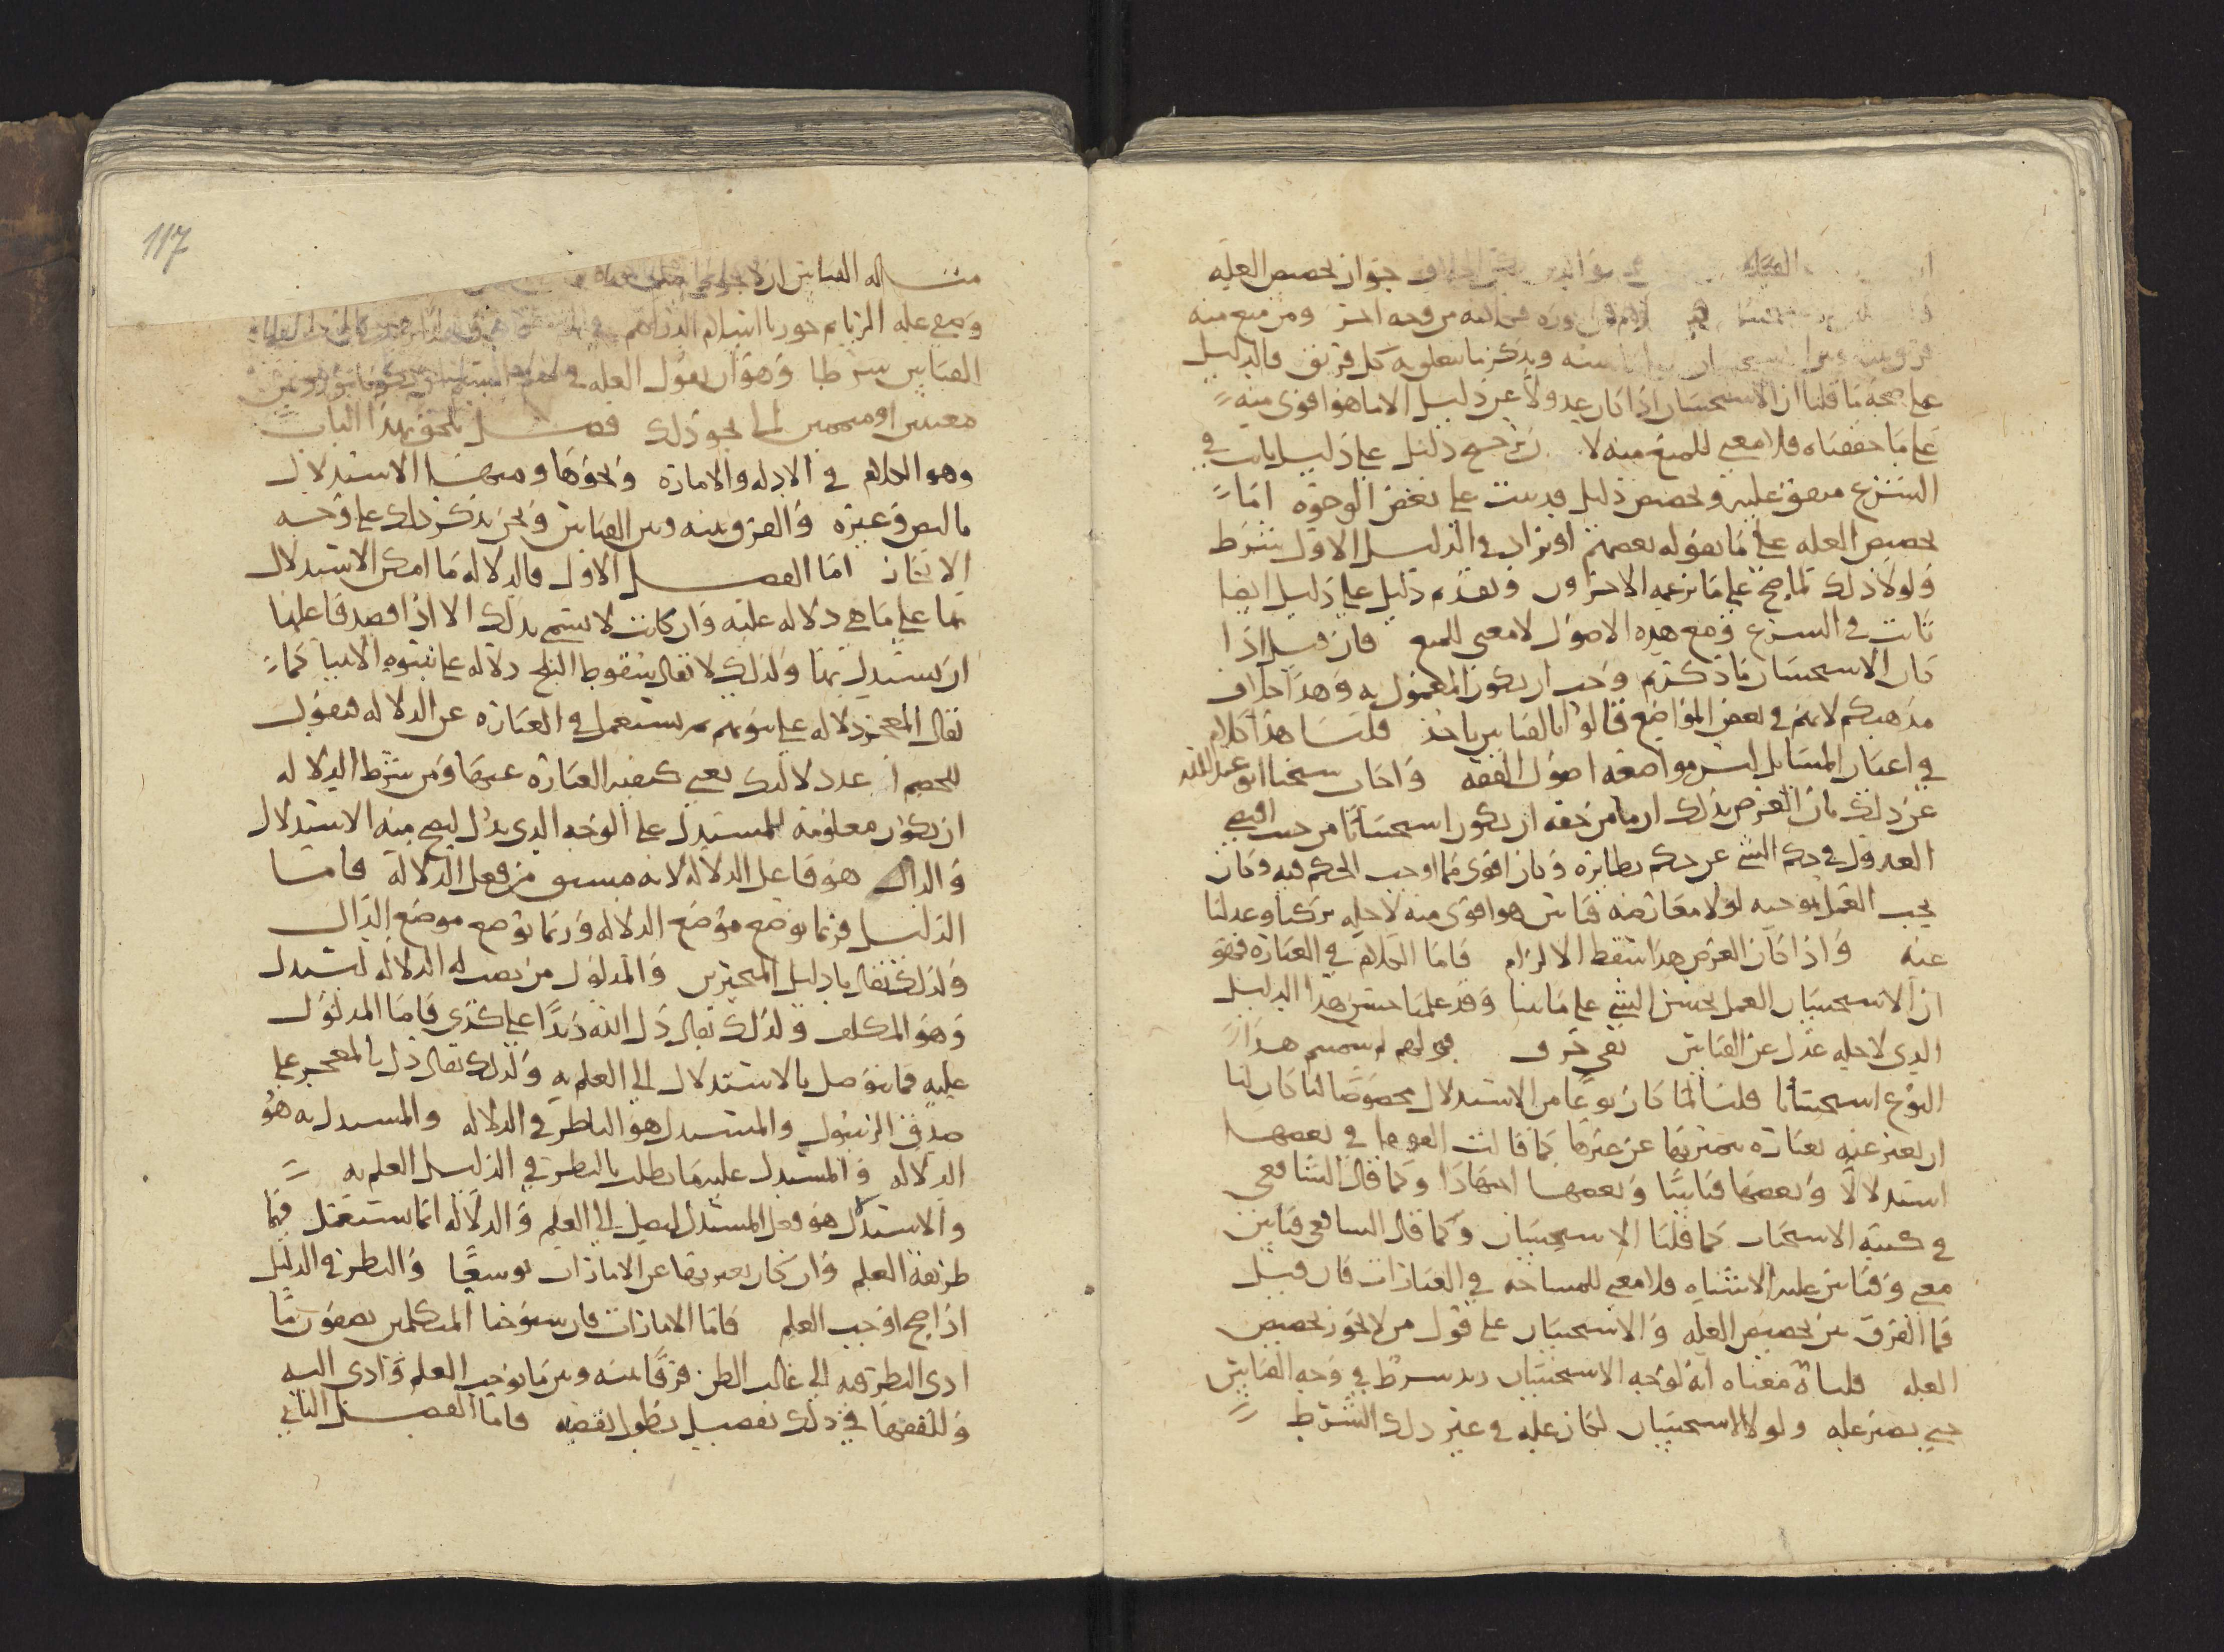 جواز تخصيص العله
من وجه اخر ومن منع منه
ويذكر ما تعلق به كل فريق فالدليل
على صحة ما قلنا ان الاستحسان اذا كان عدولا عن دليل الى ما هو اقوى منه
على ما حققناه فلا معنى للمنع منه لان ترجيح دليل على دليل ثابت في
الشرع متفق عليه وتخصيص دليل قد يثبت على بعض الوجوه اما
تخصيص العله على ما يقوله بعضهم او يزاد في الدليل الاول شرط
ولولا ذلك لما صح على ما يزعمه الاخرون وتقدم دليل على دليل ايضا
ثابت في الشرع ومع هذه الاصول لا معنى للمنع فان قيل اذا
كان الاستحسان ما ذكرتم وجب ان يكون المعمول به وهذا خلاف
مذهبكم لانكم في بعض المواضع قالوا بالقياس ناخذ قلنا هذا كلام
في اعيان المسائل ليس مواضعه اصول الفقه واجاب شيخنا ابو عبد الله
عن ذلك بان الغرض بذلك ان ما من حقه ان يكون استحسانا من حيث اقتضى
العدول في حكم الشي عن حكم نظائره وكان اقوى مما اوجب الحكم فيه وكان
يجب العمل بموجبه لولا معارضه قياس هو اقوى منه لاجله تركنا وعدلنا
عنه واذا كان الغرض هذا سقط الالزام فاما الكلام في العبارة فهو
ان الاستحسان العمل بحسن الشي على ما بينا وقد علمنا حسن هذا الدليل
الذي لاجله عدل عن القياس بقي حرف قولهم لم سميتم هذا
النوع استحسانا قلنا لما كان نوعا من الاستدلال مخصوصا لنا كان لنا
ان يعبر عنه بعبارة يميز بها عن غيرها كما قالت الفقها في بعضها
استدلالا وبعضها قياسا وبعضها اجتهادا وكما قال الشافعي
في كتبه الاستحباب كما قلنا الاستحسان وكما قال الشافعي قياس
معنى وقياس عليه الاشتباه فلا معنى للمشاحة في العبارات فان قيل
فما الفرق بين تخصيص العله والاستحسان على قول من لا يجوز تخصيص
العله قلنا معناه انه لوجه الاستحسان زيد شرط في وجه القياس
حتى يصير عله ولولا الاستحسان لكان عله في غير ذلك الشرط
117
مثاله القياس ان لا يجوز
القياس شرطا وهو ان يقول العله
معينين او منجمين الى نحو ذلك فصل يلحق بهذا الباب
وهو الكلام في الادله والامارة ونحوها ومنها الاستدلال
بالنص وغيره والفرق بينه وبين القياس ونحن نذكر ذلك على وجه
الايجاز اما الفصل الاول فالدلاله ما امكن الاستدلال
بها على ما هي دلاله عليه وان كانت لا تسمى بذلك الا اذا قصد فاعلها
ان يستدل بها ولذلك لا يقال سقوط الثلج دلاله على نبوه الانبيا كما
يقال المعجز دلاله على نبوتهم ثم يستعمل في العبارة عن الدلاله فيقول
للخصم اعد دلالتك يعني كيفيه العبارة عنها ومن شرط الدلاله
ان تكون معلومة للمستدل على الوجه الذي يدل ليصح منه الاستدلال
والدال هو فاعل الدلاله لانه مشتق من فعل الدلاله فاما
الدليل فربما يوضع موضع الدلاله وربما يوضع موضع الدال
ولذلك يقال يا دليل المتحيرين والمدلول من نصب له الدلاله ليستدل
وهو المكلف ولذلك يقال دل الله زيدا على كذى فاما المدلول
عليه فما يتوصل بالاستدلال الى العلم به ولذلك يقال دل بالمعجز على
صدق الرسول والمستدل هو الناظر في الدلاله والمستدل به هو
الدلاله والمستدل عليه ما يطلب بالنظر في الدليل العلم به
والاستدلال هو فعل المستدل ليصل الى العلم والدلاله انما تستعمل فيما
طريقه العلم وان كان يعبر بها عن الامارات توسعا والنظر في الدليل
اذا صح اوجب العلم فاما الامارات فان شيوخنا المتكلمين يصفون ما
ادى النظر فيه الى غالب الظن فرقا بينه وبين ما يوجب العلم وادى اليه
وللفقها في ذلك تفصيل يطول تقصيه فاما الفصل الثاني